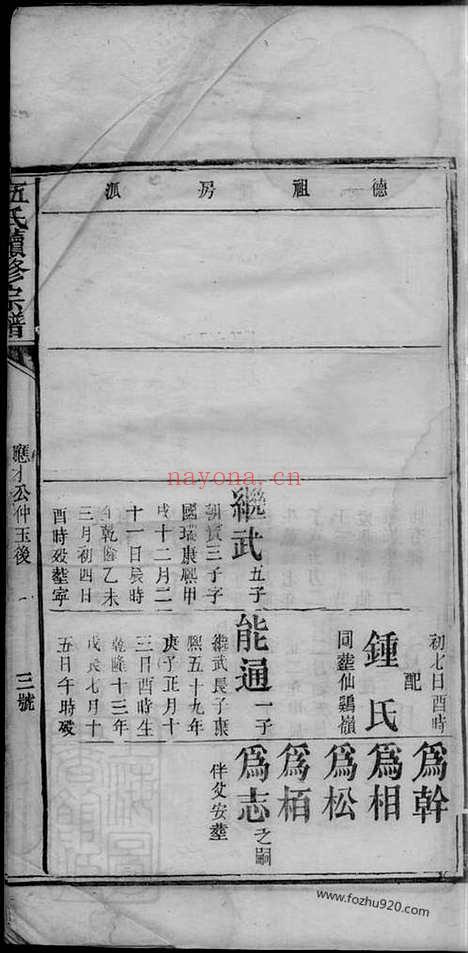 德祖房派
伍氏續修宗譜
應才公仲玉後
三號
初七日酉時
配
鍾氏
同塟仙鷄嶺
爲幹
爲相
爲松
爲栢
爲志之嗣
伴父安塟
繼武五子
朝賓三子字
國瑞康熙甲
戌十二月二
十一日辰時
生乾隆乙未
三月初四日
酉時歿塟寧
能通一子
繼武長子康
熙五十九年
庚子正月十
三日酉時生
乾隆十三年
戊辰七月十
五日午時歿
nayona.cn
www.fozhu920.com